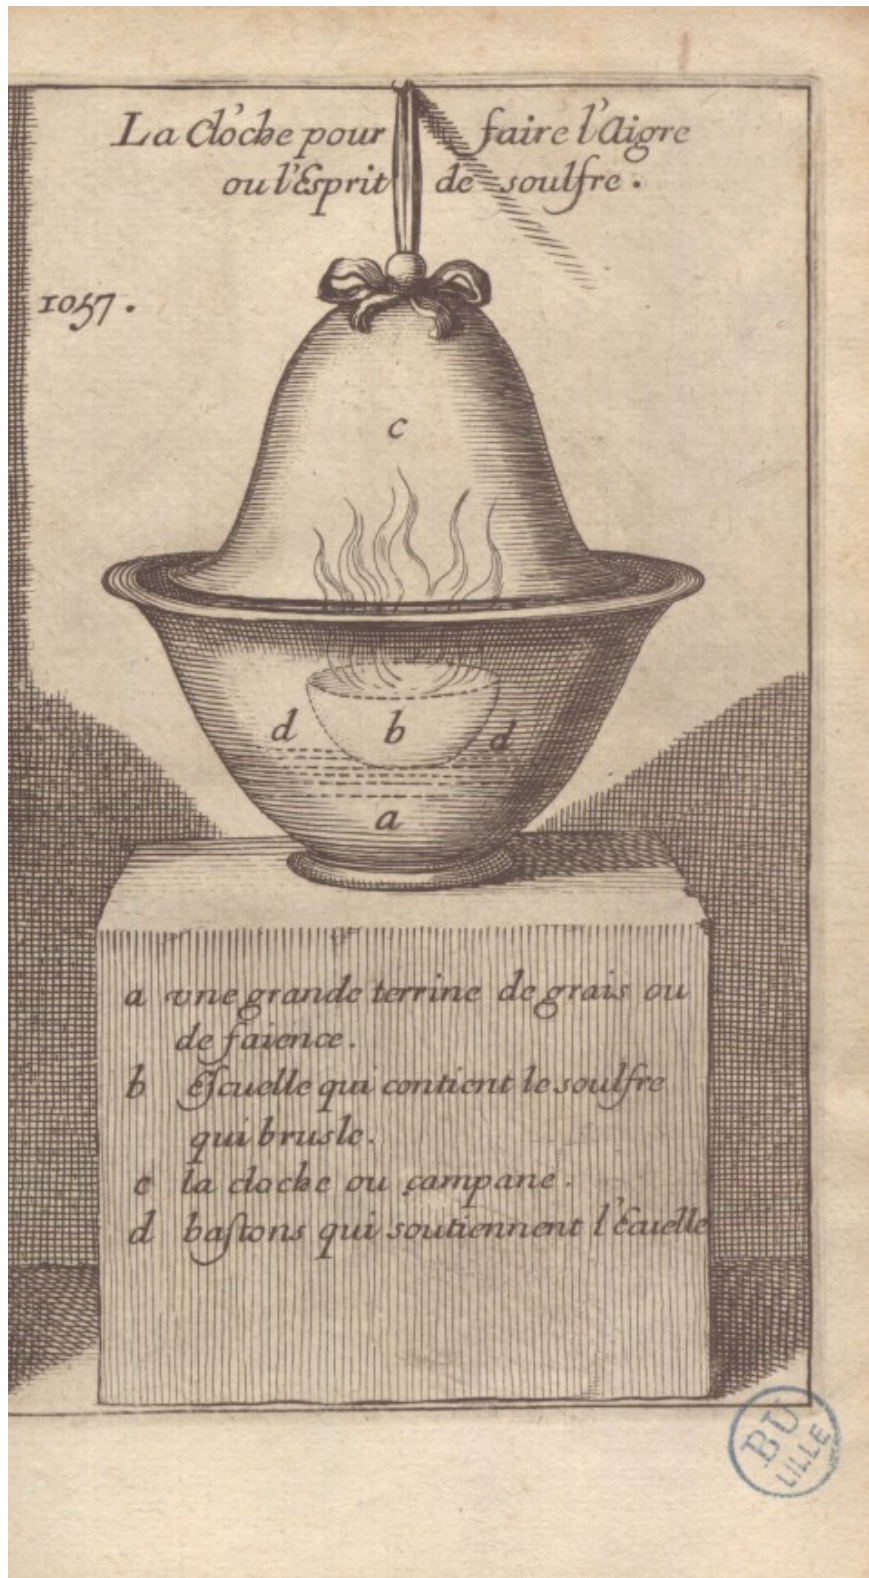 La Cloche pour faire l'Aigre
ou l'Esprit de soulfre.
1057.
c
d b d
a
a vne grande terrine de grais ou
de faience.
b Escuelle qui contient le soulfre
qui brusle.
c la cloche ou campane.
d bastons qui soutiennent l'Ecuelle
BU
LILLE